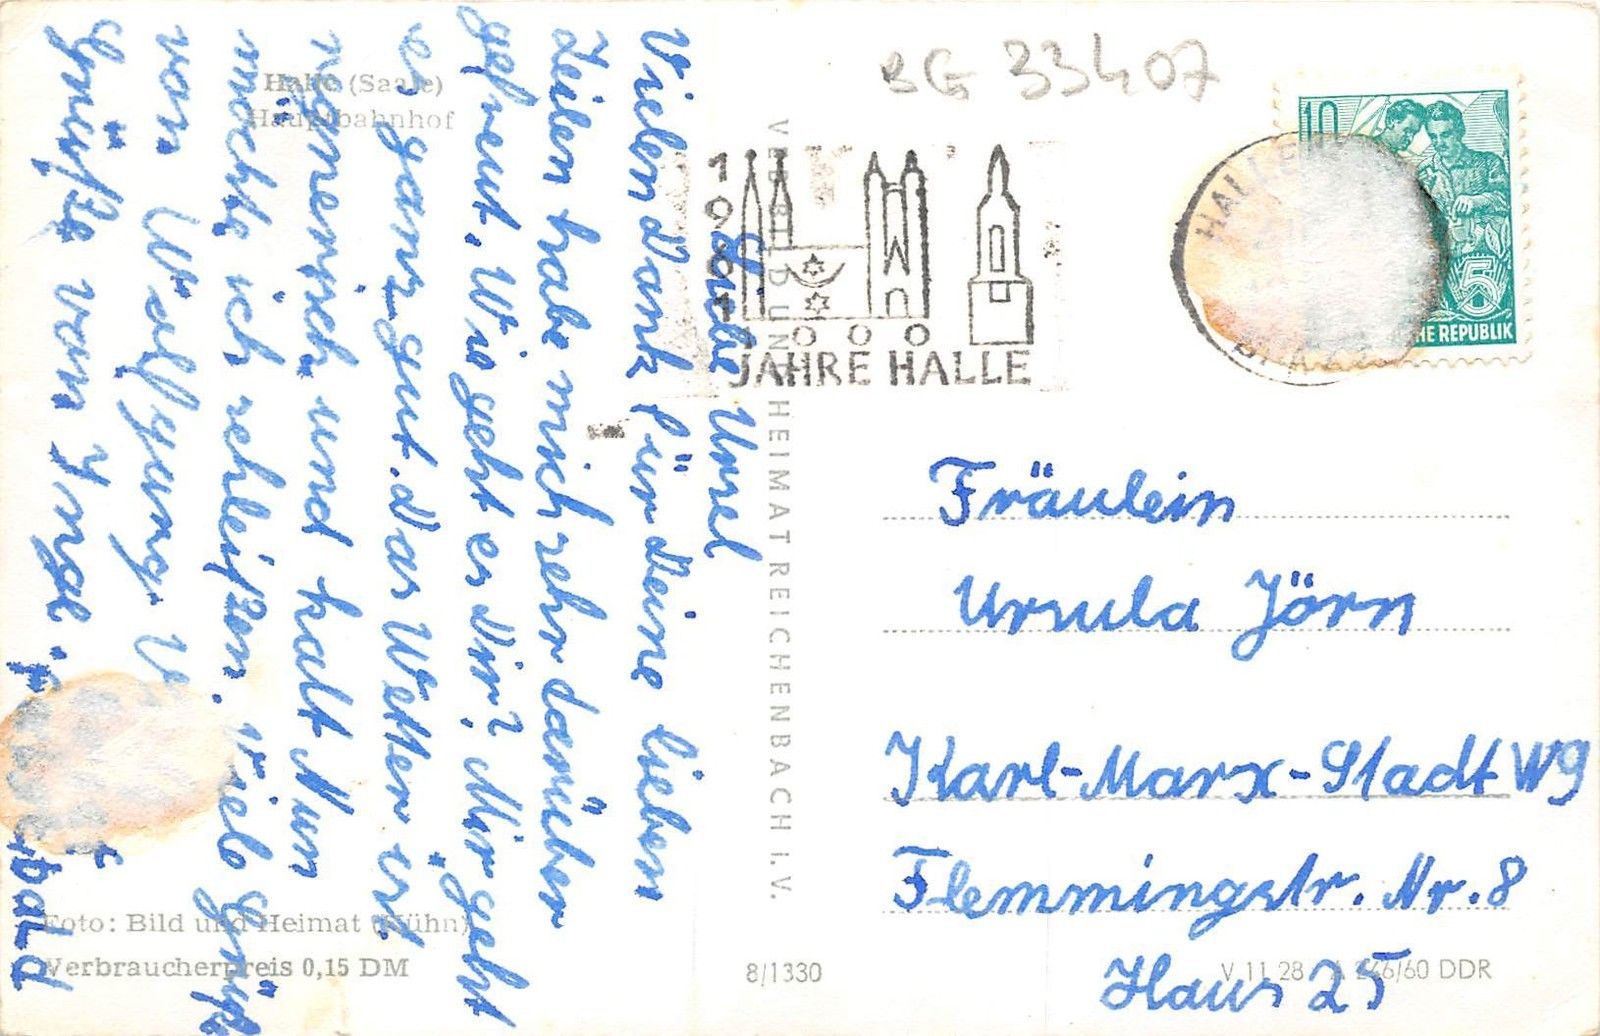 Halle (Saale)
Hauptbahnhof
Liebe Ursel
Vielen Dank für Deine lieben
Zeilen habe mich sehr darüber
gefreut. Wie geht es Dir? Mir geht
es ganz gut. Das Wetter ist
regnerisch und kalt Nun
möchte ich schließen. Viele Grüße
von Wolfgang. V
Grüße von Inge.
bald
Foto: Bild und Heimat (Kühn)
Verbraucherpreis 0,15 DM
VEB BILD UND HEIMAT REICHENBACH I. V.
8/1330
V 11 28 A 246/60 DDR
BG 33407
1961
1000
JAHRE HALLE
HALLE
10
5
HE REPUBLIK
Fräulein
Ursula Jörn
Karl-Marx-Stadt W9
Flemmingstr. Nr. 8
Haus 25